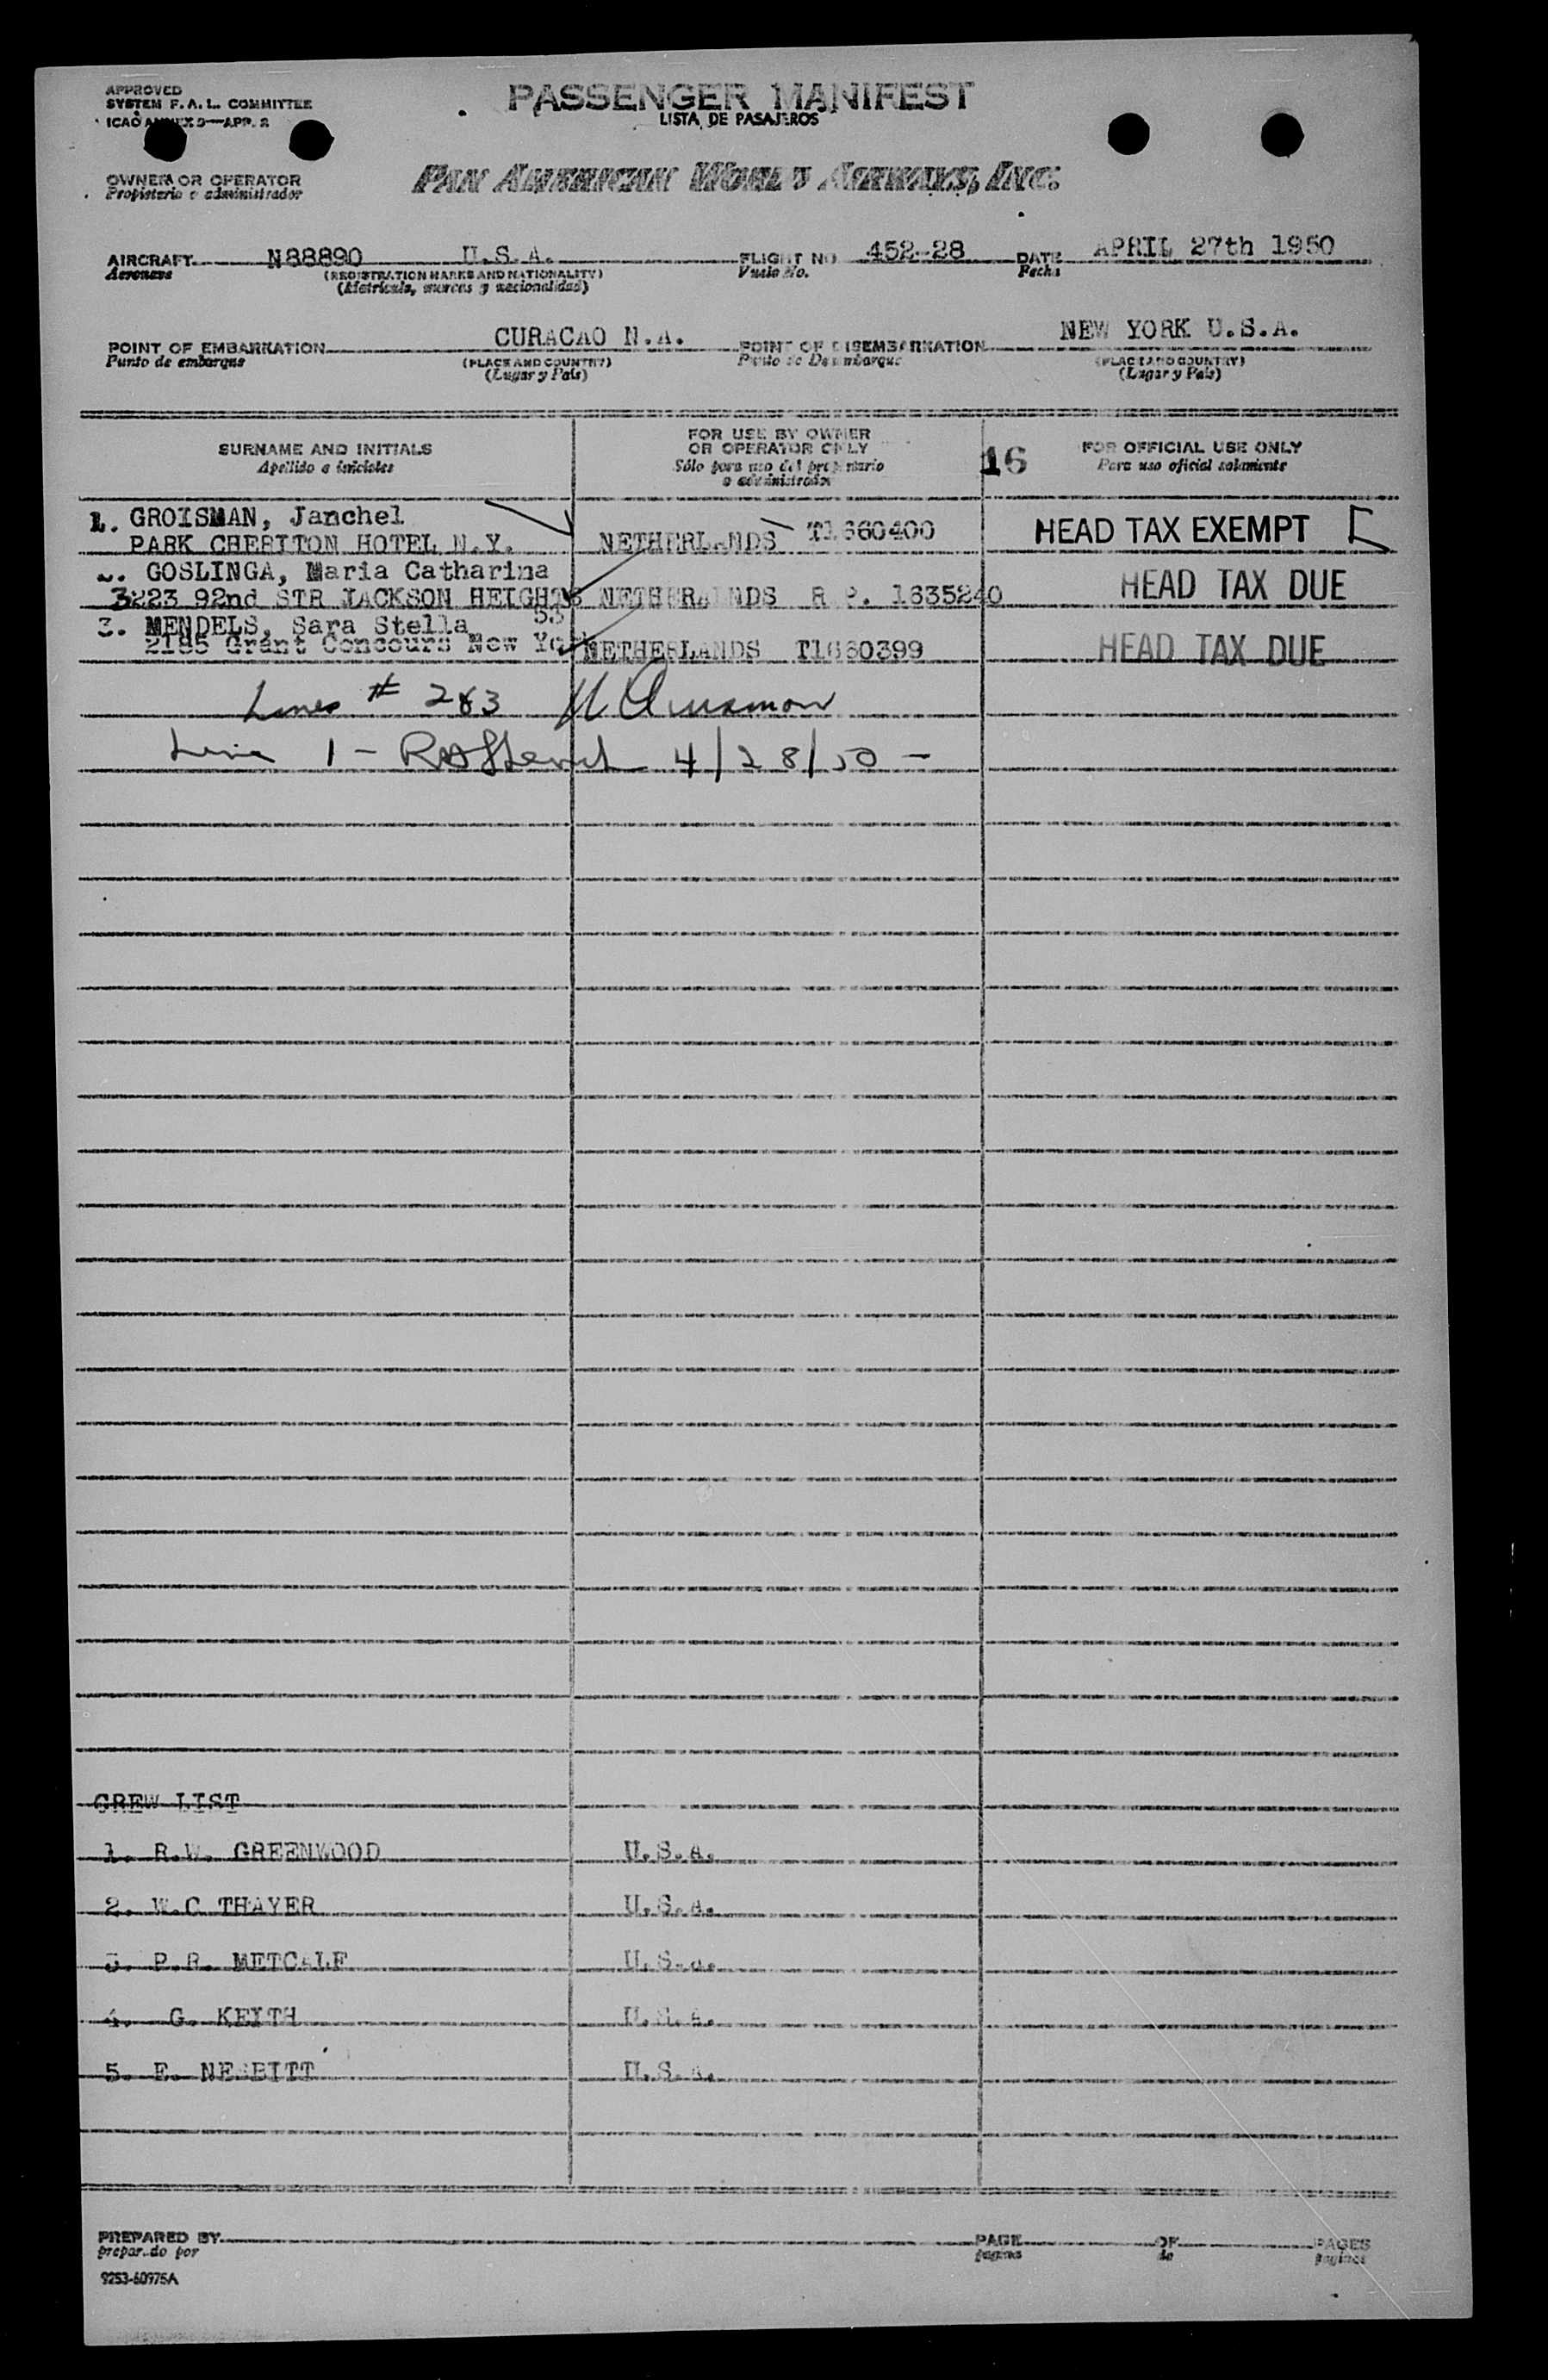 APPROVED
SYSTEM F.A.L. COMMITTEE
ICAO ANNEX 9—APP. 2
PASSENGER MANIFEST
LISTA DE PASAJEROS
OWNER OR OPERATOR
Propietario o administrador
PAN AMERICAN WORLD AIRWAYS, INC.
AIRCRAFT N88890 U.S.A. FLIGHT NO 452-28 DATE APRIL 27th 1950
Aeronave (REGISTRATION MARKS AND NATIONALITY) Vuelo No. Fecha
(Matrícula, marcas y nacionalidad)
POINT OF EMBARKATION CURACAO N.A. POINT OF DISEMBARKATION NEW YORK U.S.A.
Punto de embarque (PLACE AND COUNTRY) Punto de Desembarque (PLACE AND COUNTRY)
(Lugar y País) (Lugar y País)
SURNAME AND INITIALS
Apellido e iniciales
FOR USE BY OWNER
OR OPERATOR ONLY
Sólo para uso del propietario
o administrador
16
FOR OFFICIAL USE ONLY
Para uso oficial solamente
1. GROISMAN, Janchel
PARK CHERITON HOTEL N.Y. NETHERLANDS T1660400 HEAD TAX EXEMPT
2. GOSLINGA, Maria Catharina
3223 92nd STR JACKSON HEIGHTS NETHERLANDS R.P. 1635240 HEAD TAX DUE
3. MENDELS, Sara Stella 53
2185 Grant Concours New York NETHERLANDS T1660399 HEAD TAX DUE
Lines # 2&3
Line 1 - 4/28/50 -
CREW LIST
1. R.W. GREENWOOD U.S.A.
2. W.C THAYER U.S.A.
3. P.R. METCALF U.S.A.
4. G. KEITH U.S.A.
5. E. NESBITT U.S.A.
PREPARED BY PAGE OF PAGES
preparado por pagina de paginas
9253-60975A